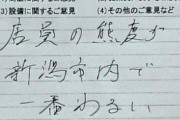 (3)設備に関するご意見 (4)その他のご意見など
店員の態度が
新潟市内で
一番わるい